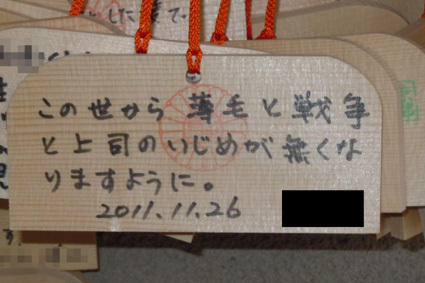 この世から薄毛と戦争
と上司のいじめが無くな
りますように。
2011.11.26